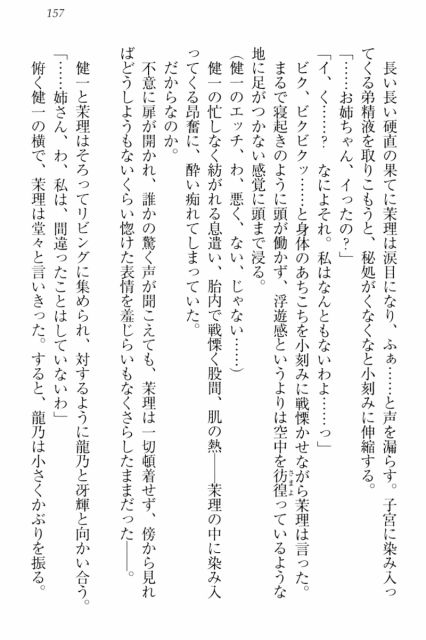 157
長い長い硬直の果てに茉理は涙目になり、ふぁ……と声を漏らす。子宮に染み入っ
てくる弟精液を取りこもうと、秘処がくなくなと小刻みに伸縮する。
「……お姉ちゃん、イったの?」
「イ、く……? なによそれ。私はなんともないわよ……っ」
ビク、ビクビクッ……と身体のあちこちを小刻みに戦慄かせながら茉理は言った。
まるで寝起きのように頭が働かず、浮遊感というよりは空中を彷徨っているような
地に足がつかない感覚に頭まで浸る。
(健一のエッチ、わ、悪く、ない、じゃない……)
健一の忙しなく紡がれる息遣い、胎内で戦慄く股間、肌の熱――茉理の中に染み入
ってくる昂奮に、酔い痴れてしまっていた。
だからなのか。
不意に扉が開かれ、誰かの驚く声が聞こえても、茉理は一切頓着せず、傍から見れ
ばどうしようもないくらい惚けた表情を羞じらいもなくさらしたままだった――。
健一と茉理はそろってリビングに集められ、対するように龍乃と冴輝と向かい合う。
「……姉さん、わ、私は、間違ったことはしていないわ」
俯く健一の横で、茉理は堂々と言いきった。すると、龍乃は小さくかぶりを振る。